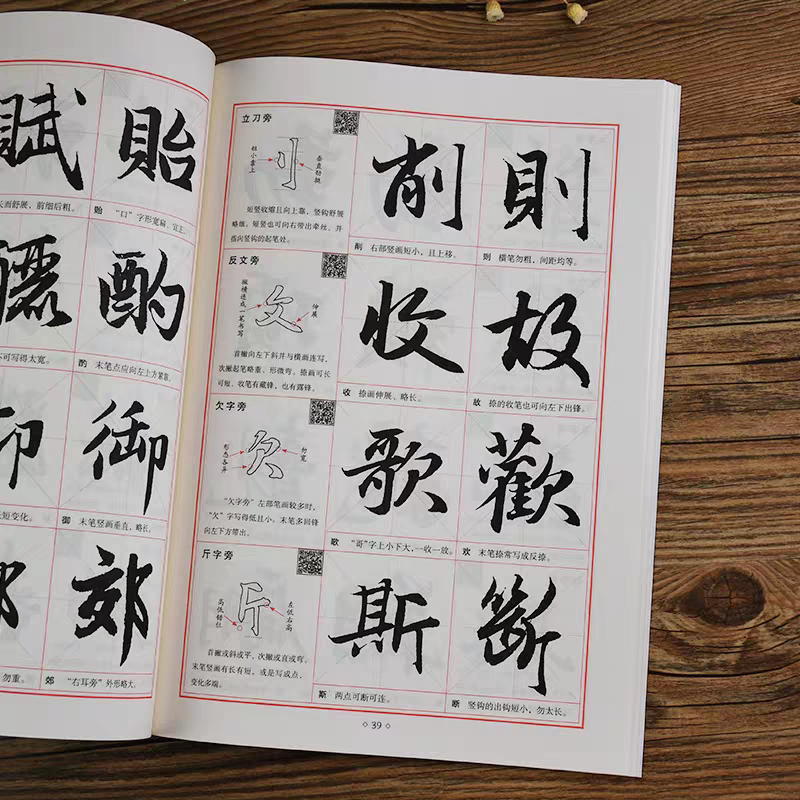 賦 貽
长而舒展，前细后粗。
贻 “口”字形宽扁、宜正。
酌
不可写得太宽。
酌 末笔点应向左上方紧靠。
御
短变化。
御 末笔竖画垂直，略长。
郊
勿重。
郊 “右耳旁”外形略大。
立刀旁
短小靠上
垂直劲挺
短竖收缩且向上靠，竖钩舒展
略细。短竖也可向右带出牵丝，并
指向竖钩的起笔处。
削 則
削 右部竖画短小，且上移。
则 横笔勿粗，间距均等。
反文旁
撇横连成一笔书写
伸展
首撇向左下斜并与横画连写，
次撇起笔略重、形微弯。捺画可长
可短，收笔有藏锋，也有露锋。
收 故
收 捺画伸展、略长。
故 捺的收笔也可向左下出锋。
欠字旁
形态各异
勿宽
“欠字旁”左部笔画较多时，
“欠”字写得低且小。末笔多回锋
向左下方带出。
歌 歡
歌 “哥”字上小下大，一收一放。
欢 末笔捺常写成反捺。
斤字旁
高低错位
左低右高
首撇或斜或平，次撇或直或弯。
末笔竖画有长有短，或是写成点，
变化多端。
斯 斷
斯 两点可断可连。
断 竖钩的出钩短小，勿太长。
39